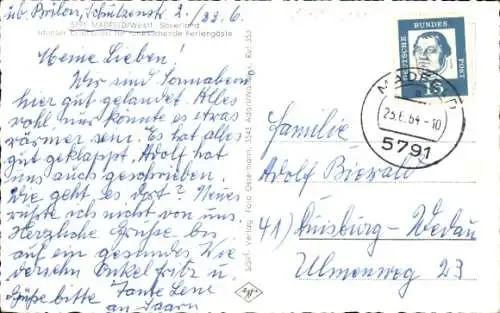 üb. Brilon, Schützenstr. 2. / 33. 6.
5791 MADFELD/Westf. Sauerland
für ruhesuchende Feriengäste
Meine Lieben!
Wir sind Sonnabend
hier gut gelandet. Alles
wohl nur könnte es etwas
wärmer sein. Es hat alles
gut geklappt. Adolf hat
uns auch geschrieben.
Wie geht es dort? Neues
wüßte ich nicht von uns.
Herzliche Grüße bis
auf ein gesundes Wie
dersehn Onkel Fritz u.
Grüße bitte Tante Lene
an Saarn
Verlag Foto
DEUTSCHE BUNDESPOST
15
MADFELD
23.6.64-10
5791
Familie
Adolf Biewald
41) Duisburg-Wedau
Ulmenweg 23